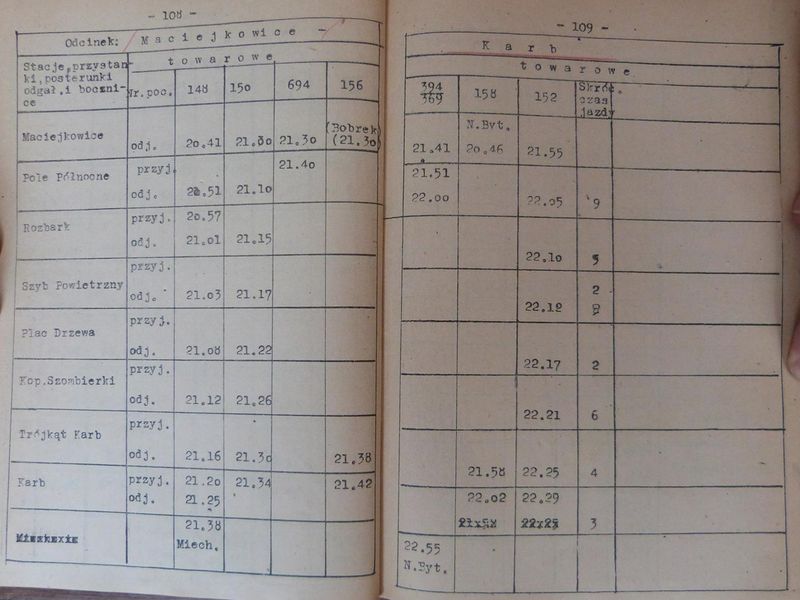 - 108 -
Odcinek: Maciejkowice -
Stacje,przystan-
ki,posterunki
odgał.i boczni-
ce
towarowe
Nr.poc. 148 150 694 156
Maciejkowice (Bobrek
odj. 20.41 21.00 21.30 (21.30)
Pole Północne przyj. 21.40
odj. 20.51 21.10
Rozbark przyj. 20.57
odj. 21.01 21.15
Szyb Powietrzny przyj.
odj. 21.03 21.17
Plac Drzewa przyj.
odj. 21.08 21.22
Kop.Szombierki przyj.
odj. 21.12 21.26
Trójkąt Karb przyj.
odj. 21.16 21.30 21.38
Karb przyj. 21.20 21.34 21.42
odj. 21.25
21.38
Miech.
- 109 -
Karb
towarowe
394
369 158 152 Skróc.
czas
jazdy
N.Byt.
21.41 20.46 21.55
21.51
22.00 22.05 9
22.10 5
2
22.12
22.17 2
22.21 6
21.58 22.25 4
22.02 22.29
3
22.55
N.Byt.